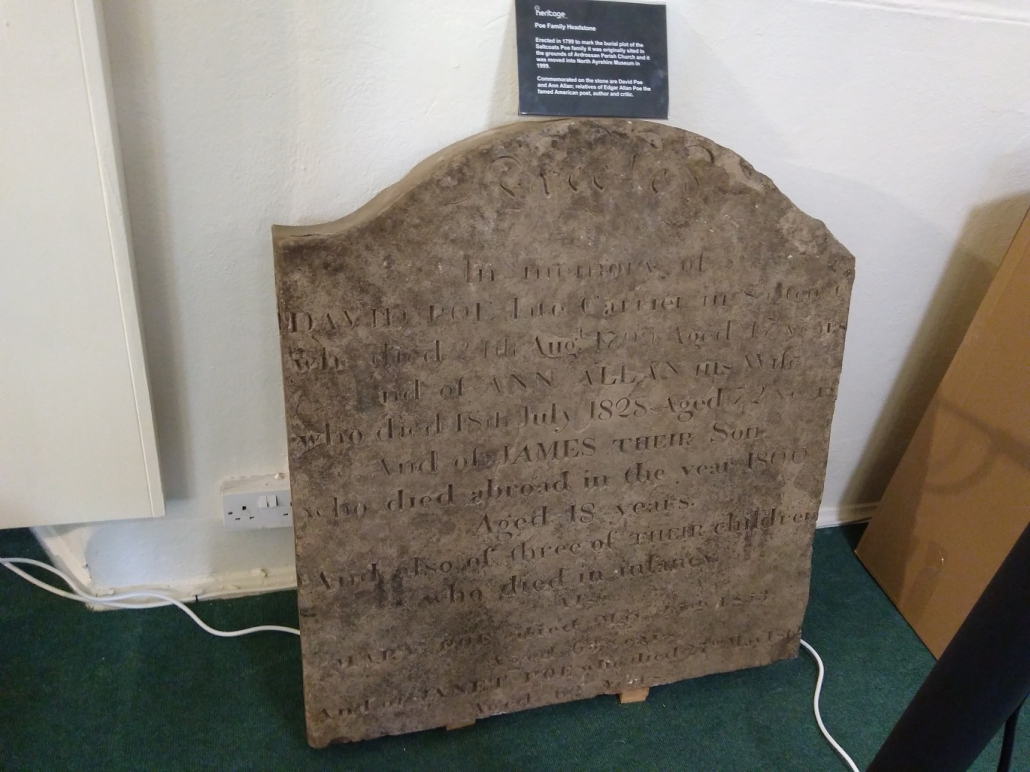 heritage
Poe Family Headstone
Erected in 1799 to mark the burial plot of the
Saltcoats Poe family it was originally sited in
the grounds of Ardrossan Parish Church and it
was moved into North Ayrshire Museum in
1999.
Commemorated on the stone are David Poe
and Ann Allan; relatives of Edgar Allan Poe the
famed American poet, author and critic.
Erected
In memory of
DAVID POE late Carrier in
who died 24th Augt Aged 47 years
And of ANN ALLAN his Wife
who died 18th July 1828 Aged 72 years
And of JAMES THEIR Son
who died abroad in the year 1800
Aged 18 years.
And also of three of THEIR children
who died in infancy
Also
MARY POE died 1853
Aged years
And of JANET POE who died
Aged